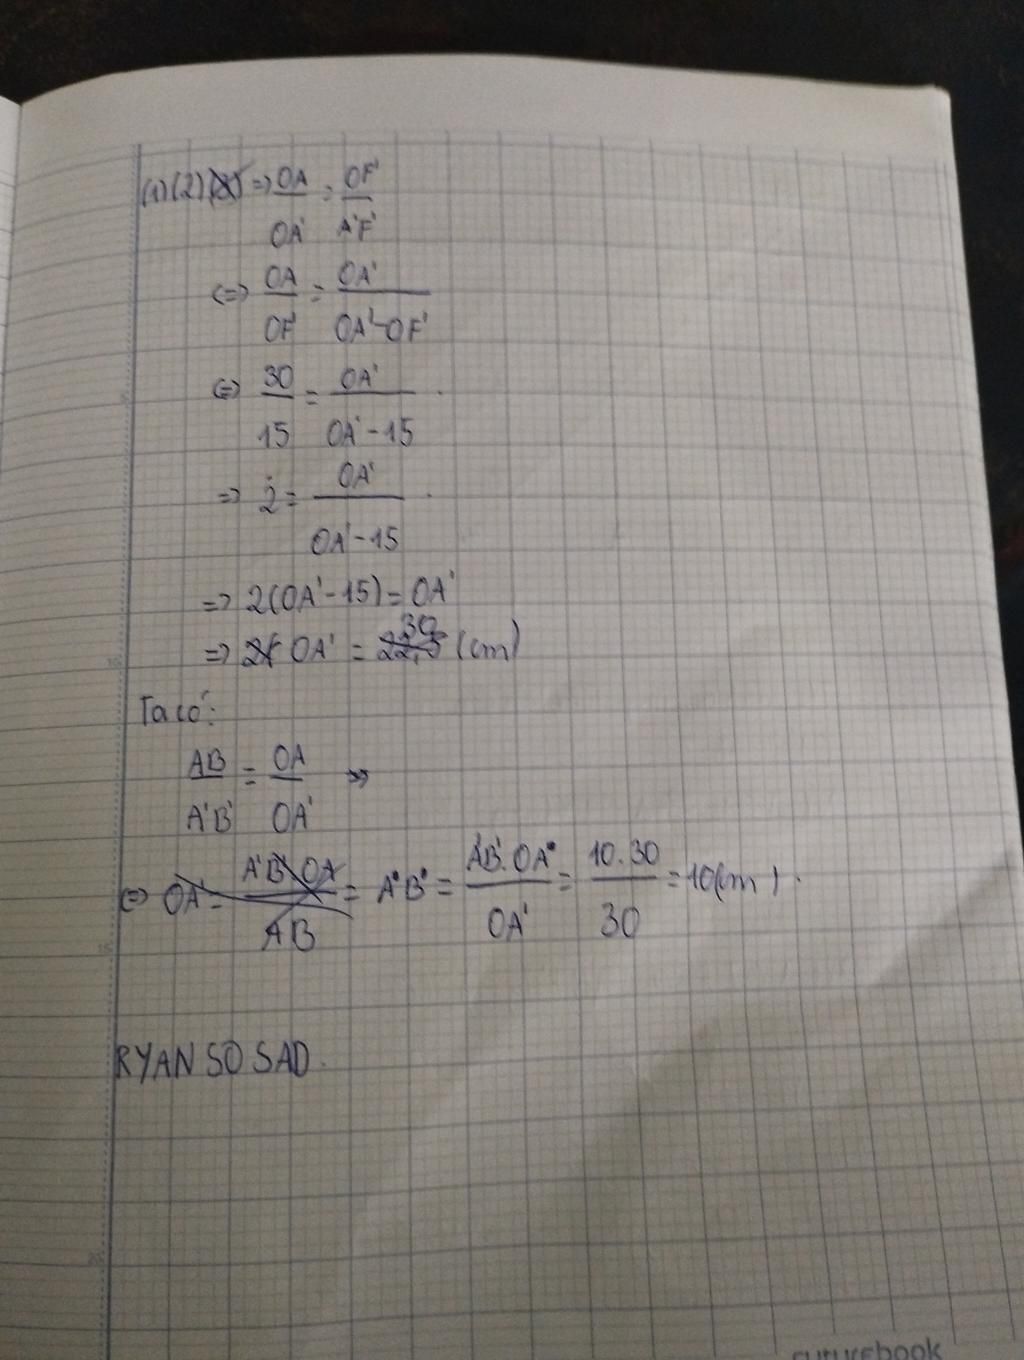 (1)(2) => OA/OA' = OF'/A'F'
<=> OA/OF' = OA'/OA'-OF'
<=> 30/15 = OA'/OA'-15
=> 2 = OA'/OA'-15
=> 2(OA'-15) = OA'
=> OA' = 30 (cm)
Ta có:
AB/A'B' = OA/OA' =>
<=> OA' = A'B'.OA/AB = A'B' = AB.OA'/OA' = 10.30/30 = 10(cm).
RYAN SO SAD.
futurebook